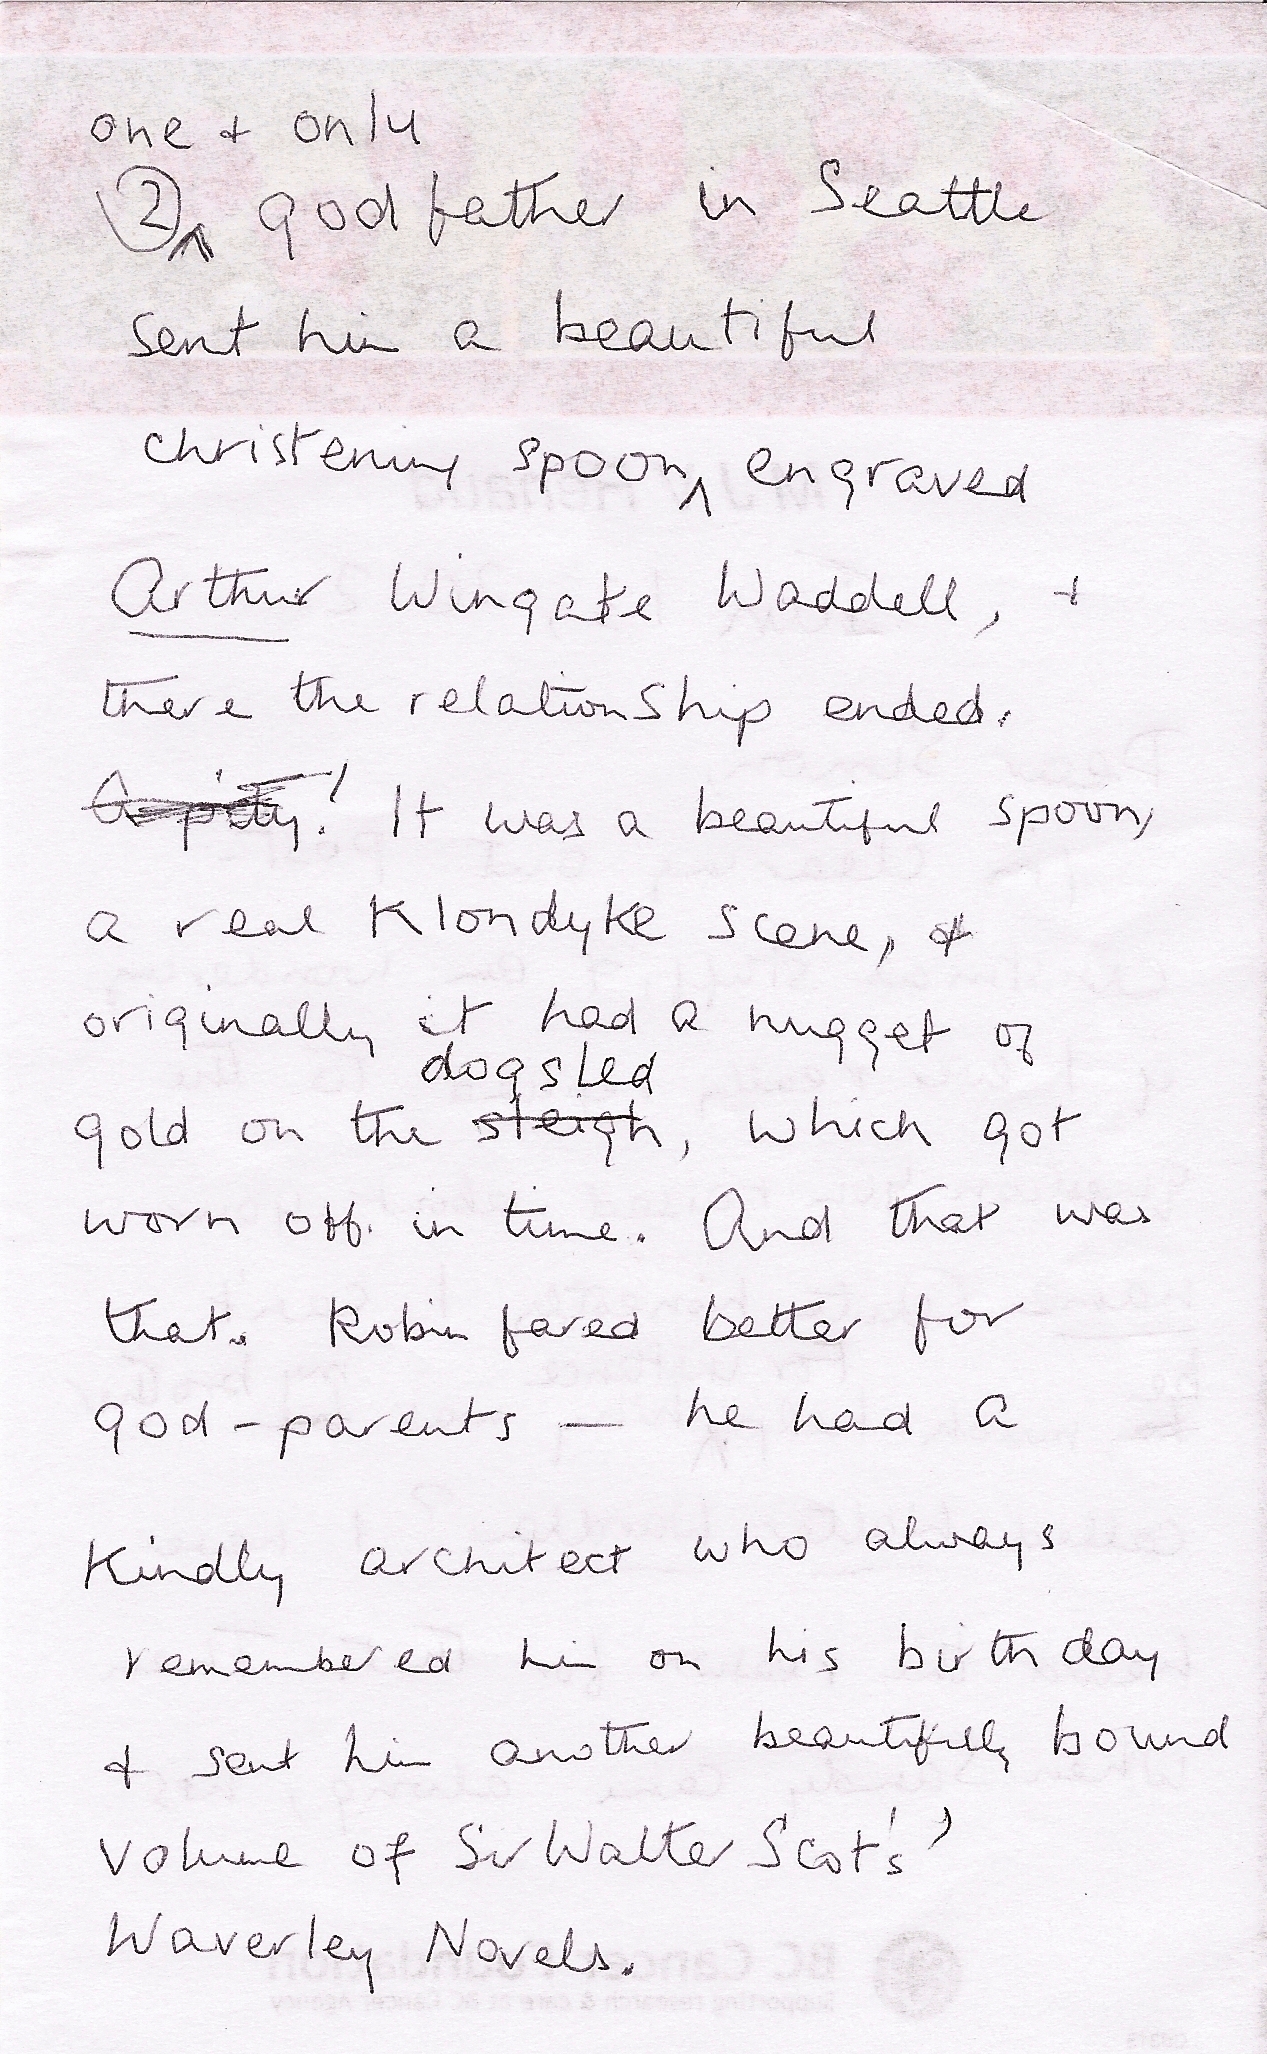 one + only
2 ^ godfather in Seattle
sent him a beautiful
christening spoon, ^ engraved
Arthur Wingate Waddell, +
there the relationship ended.
A pity! It was a beautiful spoon,
a real Klondyke scene, &
originally it had a nugget of
dogsled
gold on the sleigh, which got
worn off in time. And that was
that. Robin fared better for
god-parents — he had a
kindly architect who always
remembered him on his birthday
+ sent him another beautifully bound
volume of Sir Walter Scot's'
Waverley Novels.
BC Cancer Foundation
Supporting research & care at BC Cancer Agency